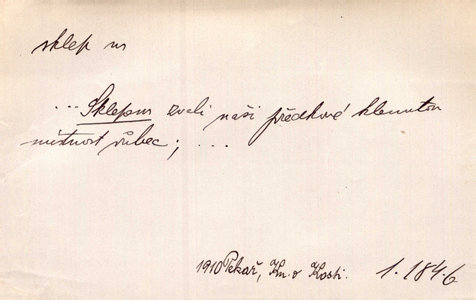 sklep m
... Sklepm zvali naši předkové klenutou
místnost vůbec; ...
1910 Pekař, Kn. o Kosti. 1. 184. 6